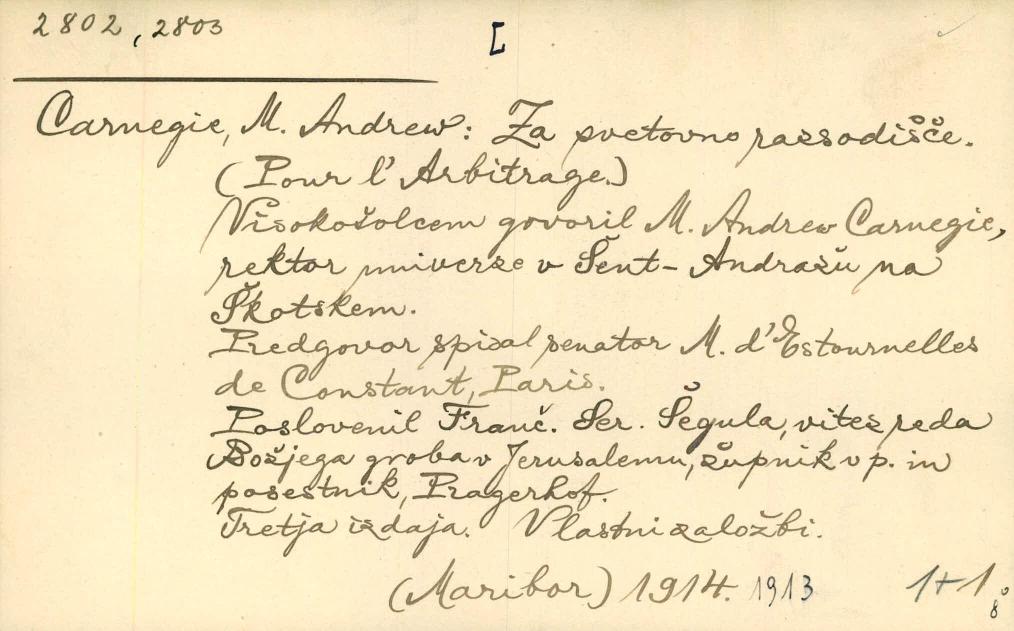 2802, 2803
[
Carnegie, M. Andrew: Za svetovno razsodišče.
(Pour l' Arbitrage.)
Visokošolcem govoril M. Andrew Carnegie,
rektor univerze v Šent-Andražu na
Škotskem.
Predgovor spisal senator M. d'Estournelles
de Constant, Paris.
Poslovenil Franč. Ser. Šegula, vitez reda
Božjega groba v Jerusalemu, župnik v p. in
posestnik, Pragerhof.
Tretja izdaja. V lastni založbi.
(Maribor) 1914. 1913 1+1
8°